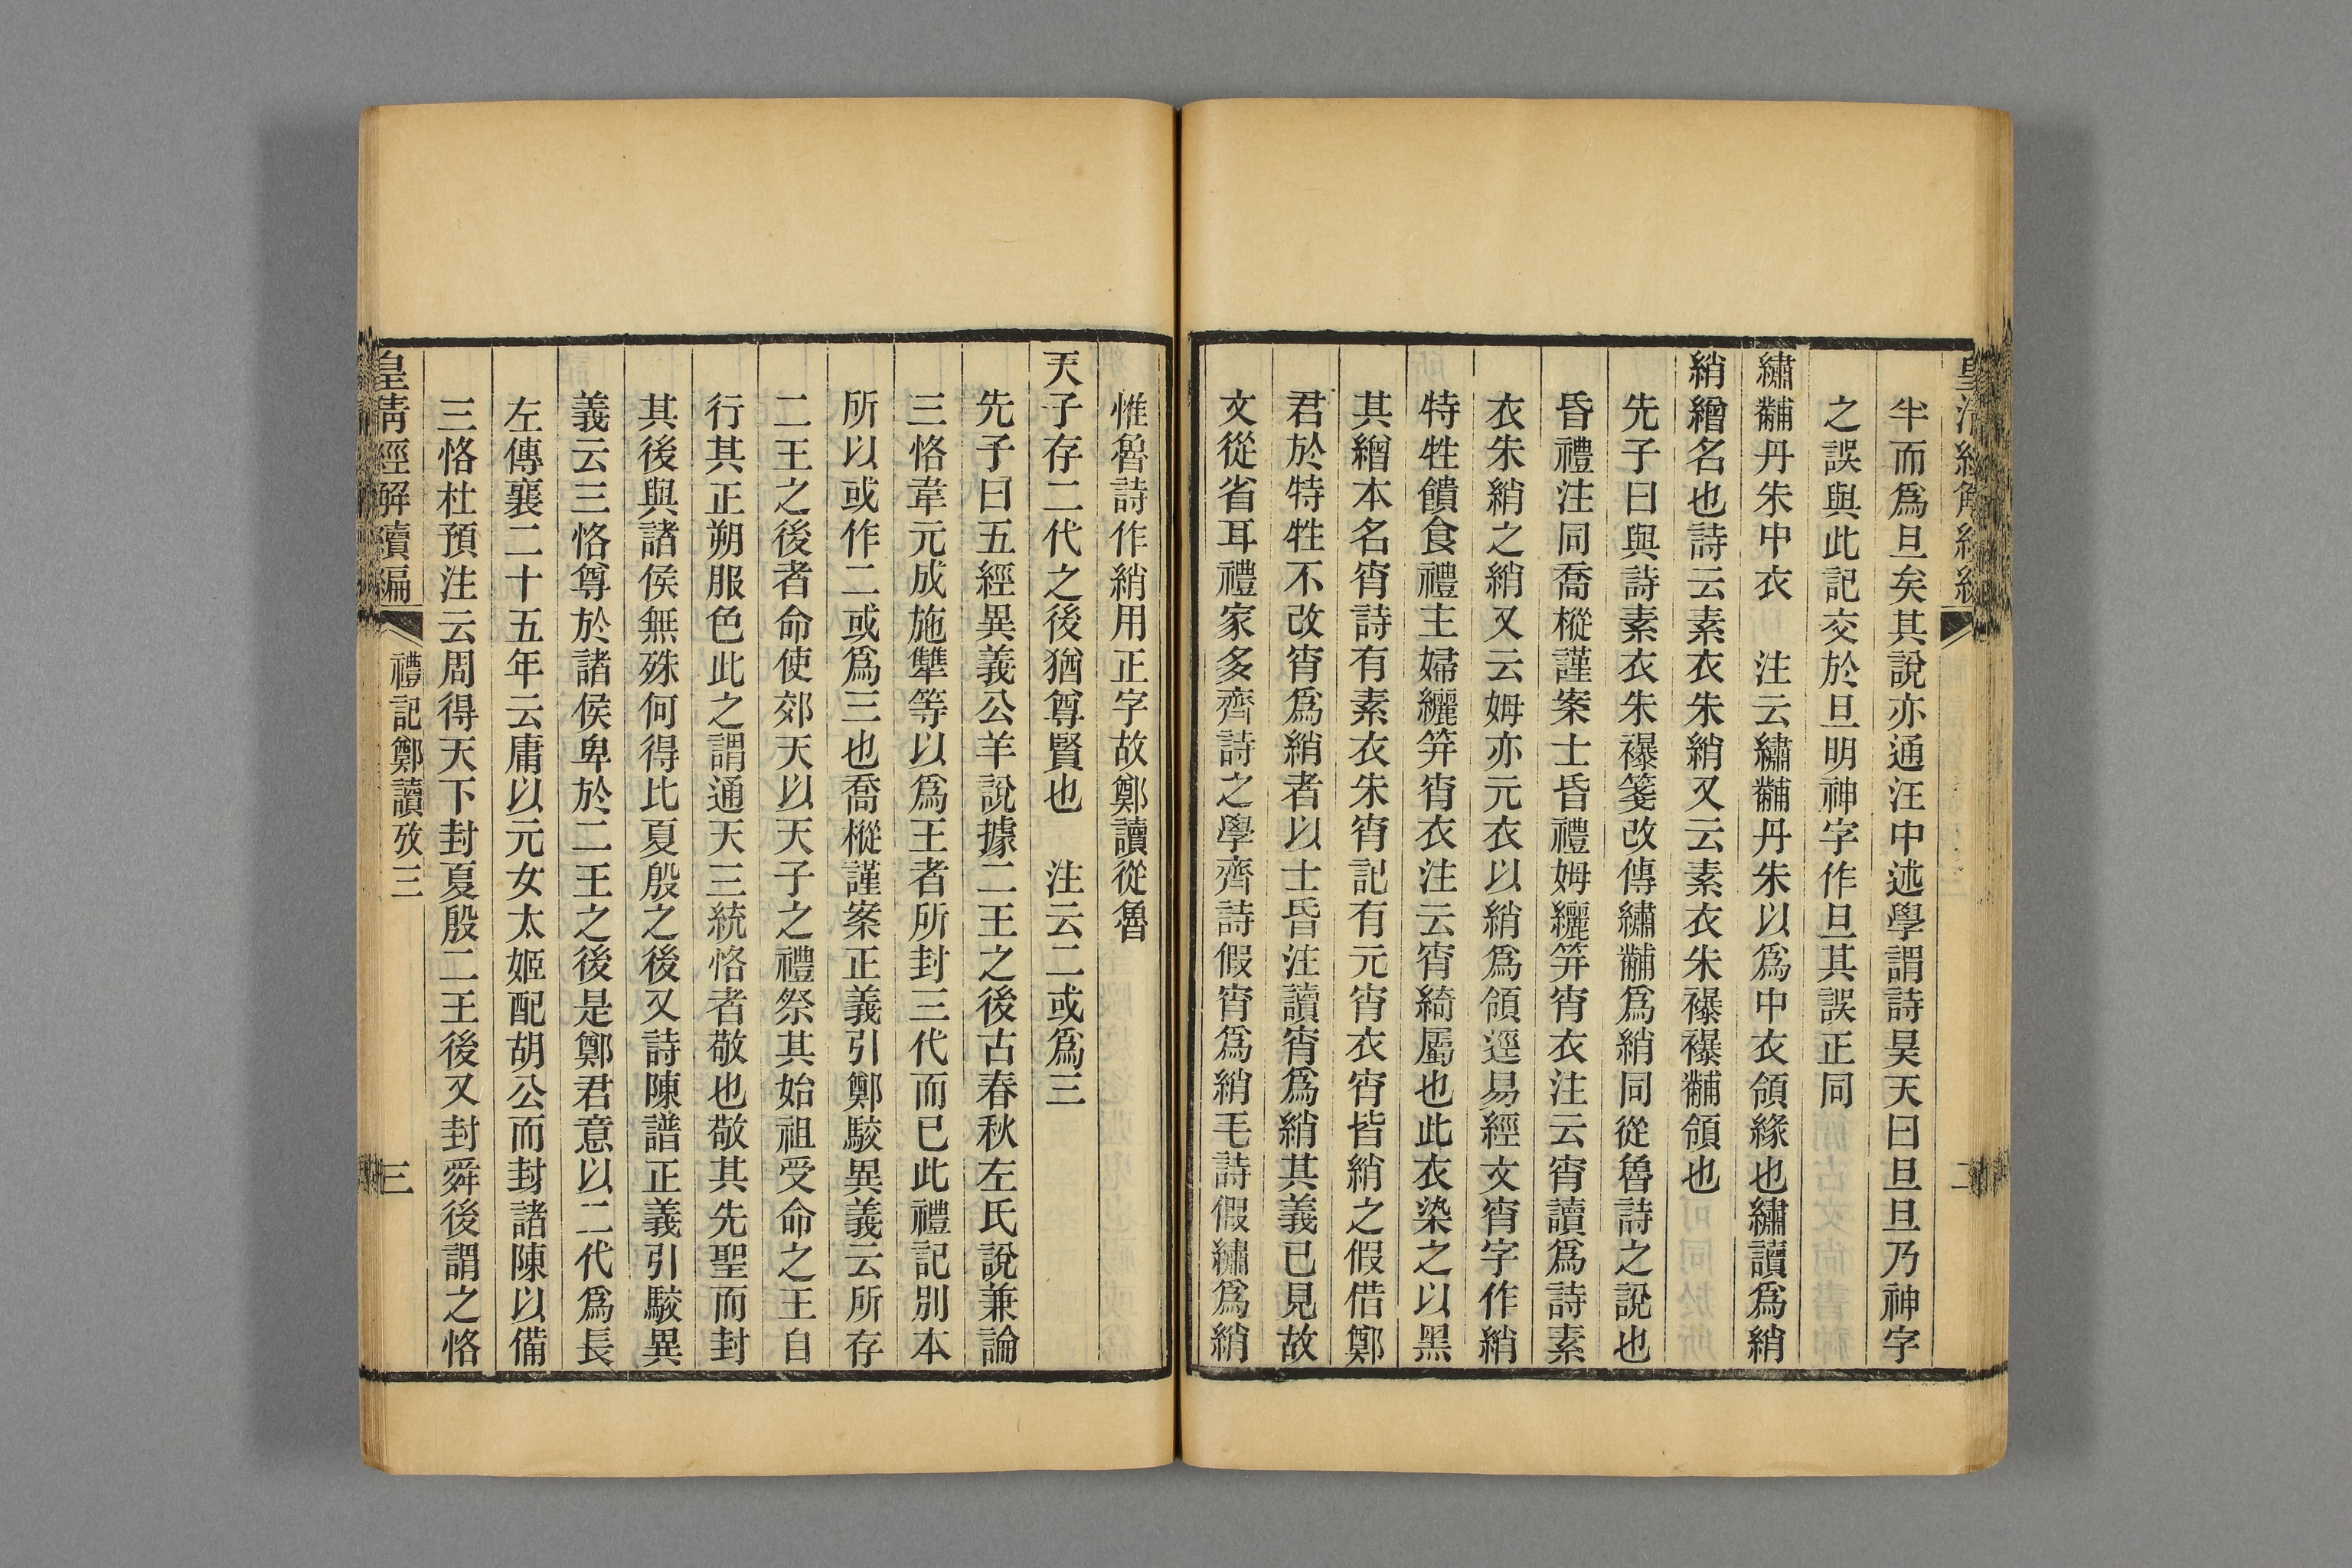 半而爲旦矣其說亦通汪中述學謂詩昊天曰旦旦乃神字
之誤與此記交於旦明神字作旦其誤正同
繡黼丹朱中衣　注云繡黼丹朱以爲中衣領緣也繡讀爲綃
綃繒名也詩云素衣朱綃又云素衣朱襮襮黼領也
先子曰與詩素衣朱襮箋改傳繡黼爲綃同從魯詩之說也
昏禮注同喬樅謹案士昏禮姆纚笄宵衣注云宵讀爲詩素
衣朱綃之綃又云姆亦元衣以綃爲領逕易經文宵字作綃
特牲饋食禮主婦纚笄宵衣注云宵綺屬也此衣染之以黑
其繒本名宵詩有素衣朱宵記有元宵衣宵皆綃之假借鄭
君於特牲不改宵爲綃者以士昏注讀宵爲綃其義已見故
文從省耳禮家多齊詩之學齊詩假宵爲綃毛詩假繡爲綃
惟魯詩作綃用正字故鄭讀從魯
天子存二代之後猶尊賢也　注云二或爲三
先子曰五經異義公羊說據二王之後古春秋左氏說兼論
三恪韋元成施犨等以爲王者所封三代而已此禮記別本
所以或作二或爲三也喬樅謹案正義引鄭駮異義云所存
二王之後者命使郊天以天子之禮祭其始祖受命之王自
行其正朔服色此之謂通天三統恪者敬也敬其先聖而封
其後與諸侯無殊何得比夏殷之後又詩陳譜正義引駮異
義云三恪尊於諸侯卑於二王之後是鄭君意以二代爲長
左傳襄二十五年云庸以元女太姬配胡公而封諸陳以備
三恪杜預注云周得天下封夏殷二王後又封舜後謂之恪
皇清經解續編　禮記鄭讀攷三　三